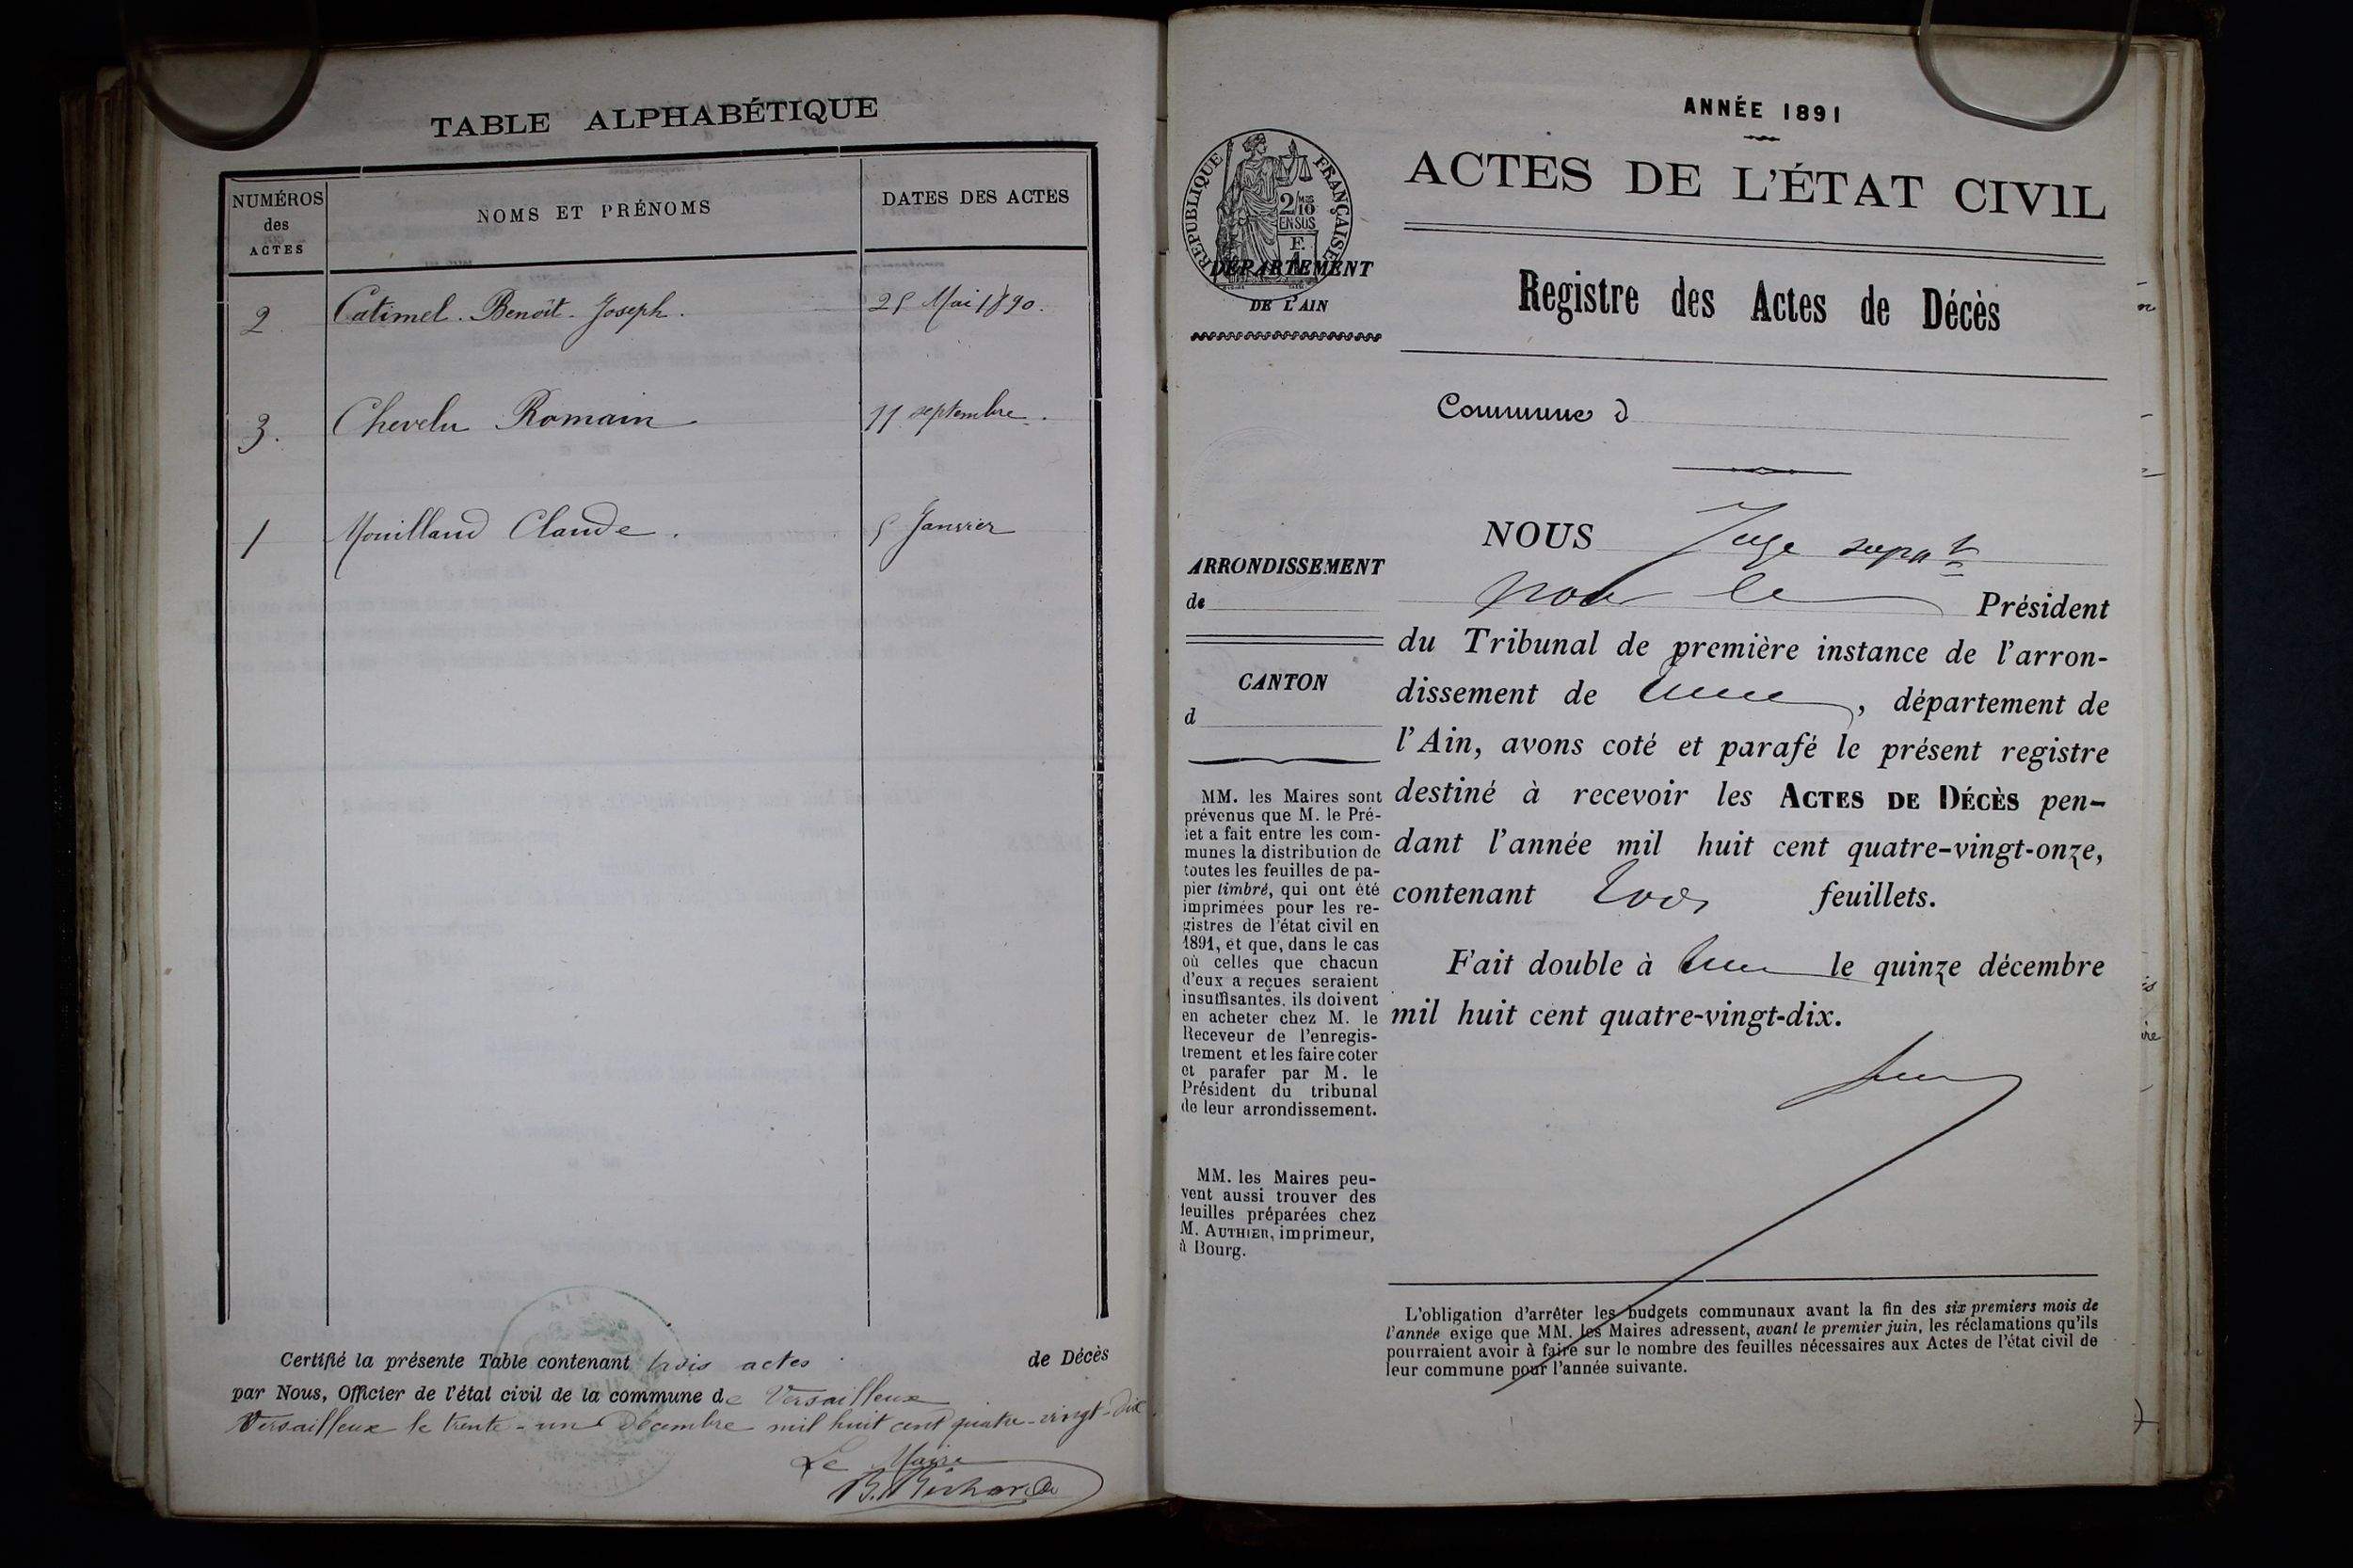 TABLE ALPHABÉTIQUE
NUMÉROS
des
ACTES
NOMS ET PRÉNOMS
DATES DES ACTES
2 Catimel Benoît Joseph. 25 Mai 1890.
3. Chevelu Romain 11 septembre.
1 Mouilland Claude. 5 Janvier
Certifié la présente Table contenant trois actes de Décès
par Nous, Officier de l'état civil de la commune de Versailleux
Versailleux le trente-un Décembre mil huit cent quatre-vingt-dix
Le Maire
ANNÉE 1891
ACTES DE L'ÉTAT CIVIL
Registre des Actes de Décès
RÉPUBLIQUE FRANÇAISE
2/10 EN SUS
DÉPARTEMENT
DE L'AIN
Commune d
ARRONDISSEMENT
de
CANTON
d
MM. les Maires sont
prévenus que M. le Pré-
fet a fait entre les com-
munes la distribution de
toutes les feuilles de pa-
pier timbré, qui ont été
imprimées pour les re-
gistres de l'état civil en
1891, et que, dans le cas
où celles que chacun
d'eux a reçues seraient
insuffisantes, ils doivent
en acheter chez M. le
Receveur de l'enregis-
trement et les faire coter
et parafer par M. le
Président du tribunal
de leur arrondissement.
MM. les Maires peu-
vent aussi trouver des
feuilles préparées chez
M. AUTHIER, imprimeur,
à Bourg.
NOUS Juge
pour le Président
du Tribunal de première instance de l'arron-
dissement de , département de
l'Ain, avons coté et parafé le présent registre
destiné à recevoir les ACTES DE DÉCÈS pen-
dant l'année mil huit cent quatre-vingt-onze,
contenant trois feuillets.
Fait double à le quinze décembre
mil huit cent quatre-vingt-dix.
L'obligation d'arrêter les budgets communaux avant la fin des six premiers mois de
l'année exige que MM. les Maires adressent, avant le premier juin, les réclamations qu'ils
pourraient avoir à faire sur le nombre des feuilles nécessaires aux Actes de l'état civil de
leur commune pour l'année suivante.